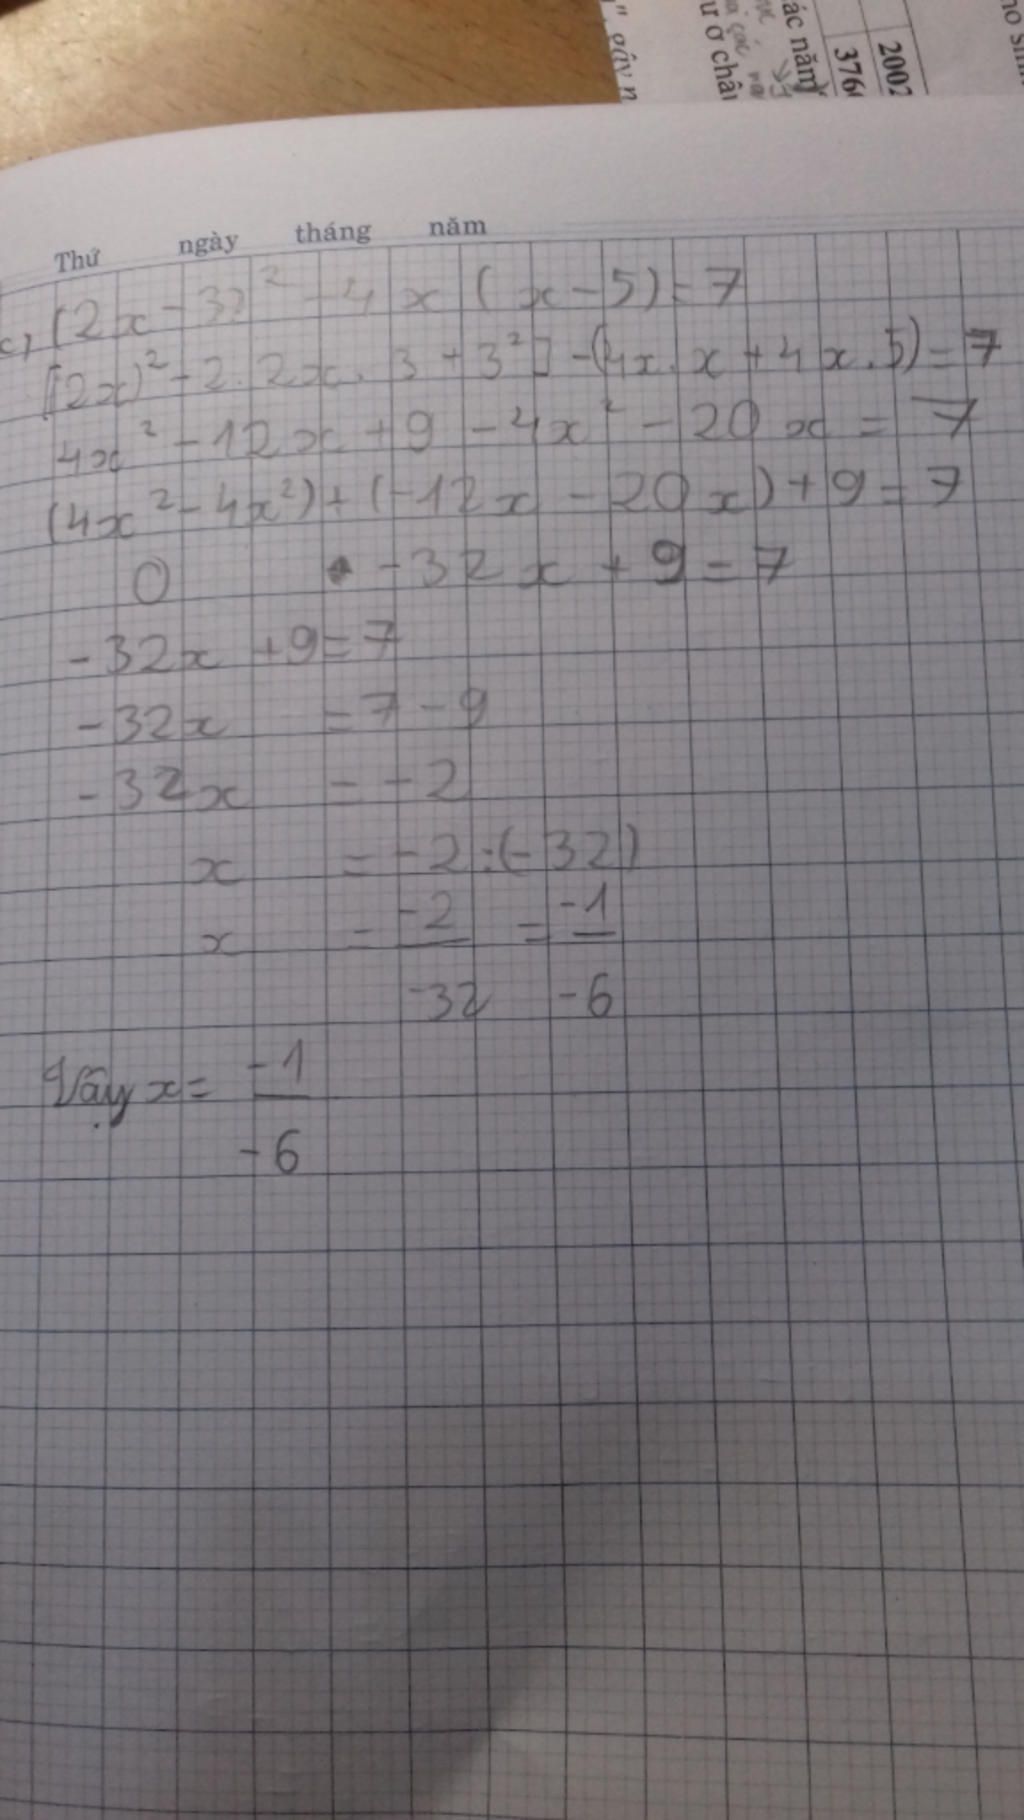 " gây n
ư ở châu
ác năm
376
2002
Thứ ngày tháng năm
c, (2x - 3)² - 4x (x - 5) = 7
[(2x)² - 2.2x.3 + 3²] - (4x.x + 4x.5) = 7
4x² - 12x + 9 - 4x² - 20x = 7
(4x² - 4x²) + (-12x - 20x) + 9 = 7
0 - 32x + 9 = 7
-32x + 9 = 7
-32x = 7 - 9
-32x = -2
x = -2 : (-32)
x = -2/-32 = -1/-6
Vậy x = -1/-6